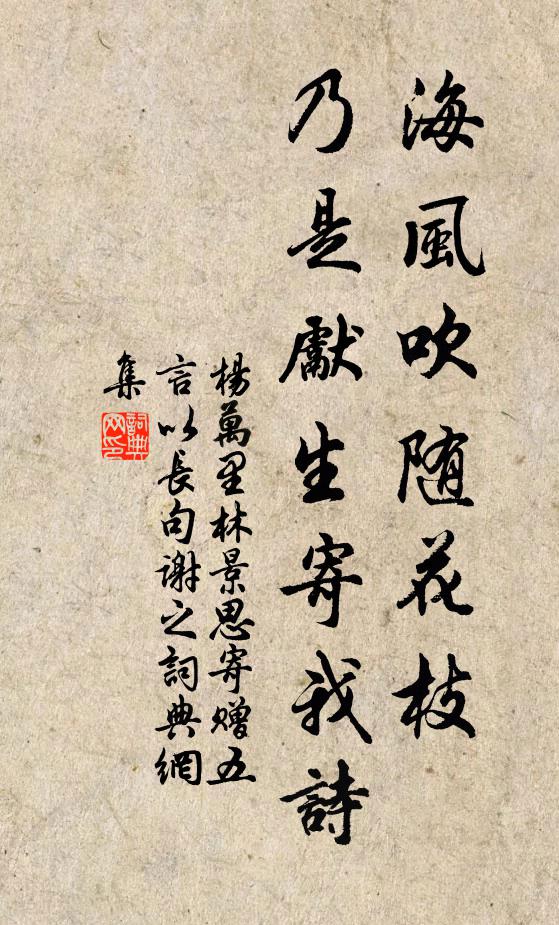 海風吹随花枝
乃是獻生寄我詩
楊萬里林景思寄赠五
言以長句谢之詞典網
集
詞典
网印